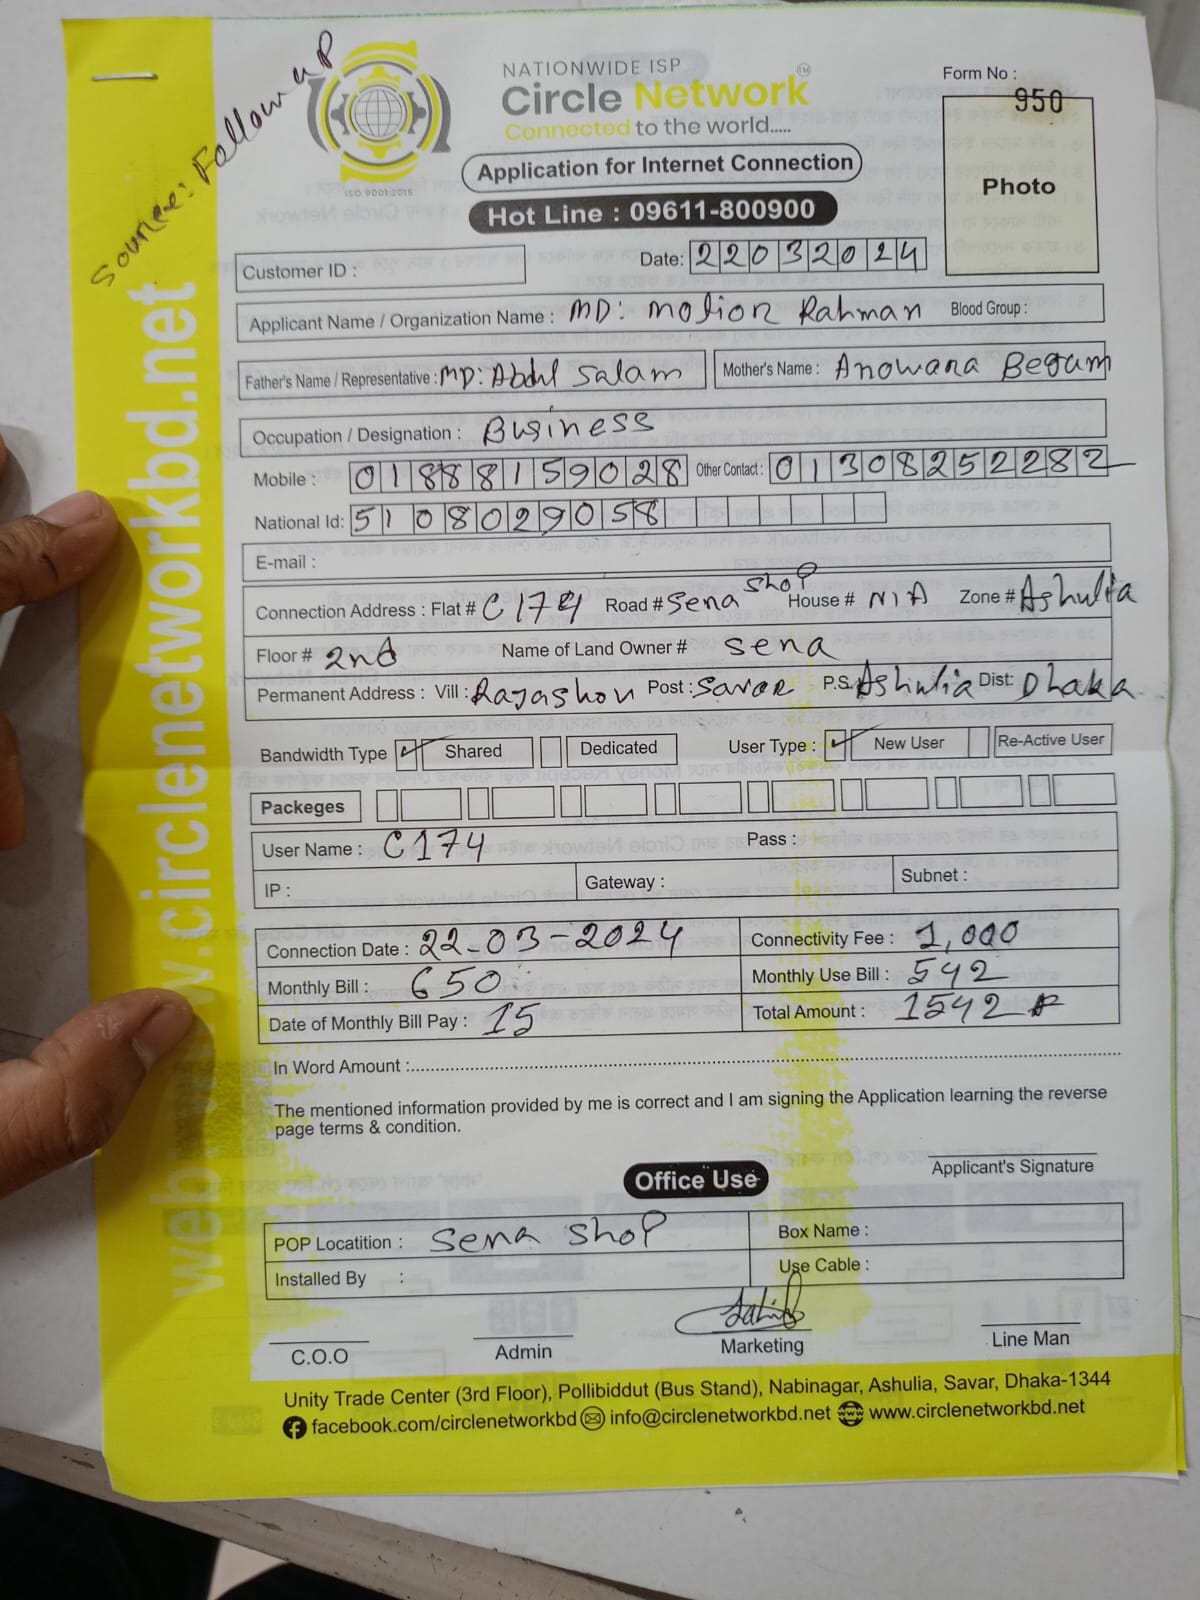 Source: Follow up
NATIONWIDE ISP
Circle Network TM
Connected to the world.....
ISO 9001:2015
Application for Internet Connection
Hot Line : 09611-800900
Form No :
950
Photo
Customer ID :
Date: 22032024
Applicant Name / Organization Name : MD: Motior Rahman Blood Group :
Father's Name / Representative : MD: Abdul Salam Mother's Name : Anowara Begum
Occupation / Designation : Business
Mobile : 01888159028 Other Contact : 01308252282
National Id: 5108029058
E-mail :
Connection Address : Flat # C174 Road # Sena Shop House # N/A Zone # Ashulia
Floor # 2nd Name of Land Owner # Sena
Permanent Address : Vill : Rajashon Post : Savar P.S. Ashulia Dist: Dhaka
Bandwidth Type Shared Dedicated User Type : New User Re-Active User
Packeges
User Name : C174 Pass :
IP : Gateway : Subnet :
Connection Date : 22-03-2024 Connectivity Fee : 1,000
Monthly Bill : 650 Monthly Use Bill : 542
Date of Monthly Bill Pay : 15 Total Amount : 1542
In Word Amount :
The mentioned information provided by me is correct and I am signing the Application learning the reverse
page terms & condition.
Applicant's Signature
Office Use
POP Locatition : Sena Shop Box Name :
Installed By : Use Cable :
C.O.O Admin Marketing Line Man
Unity Trade Center (3rd Floor), Pollibiddut (Bus Stand), Nabinagar, Ashulia, Savar, Dhaka-1344
facebook.com/circlenetworkbd info@circlenetworkbd.net www.circlenetworkbd.net
web: www.circlenetworkbd.net